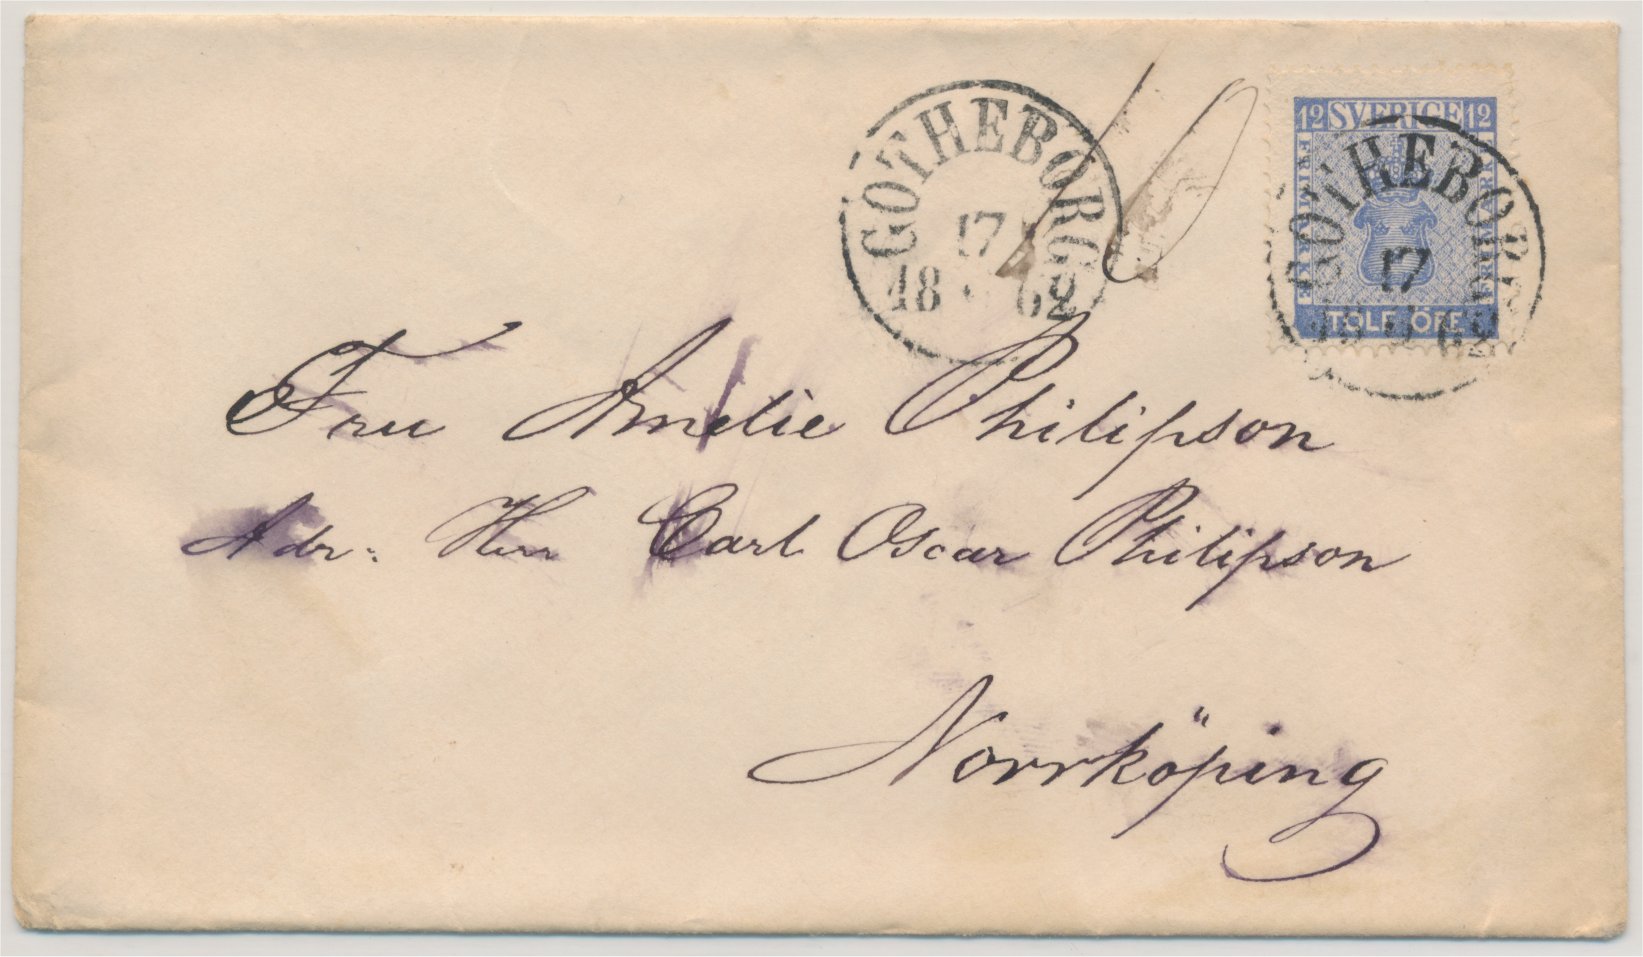 GÖTHEBORG
17
18 62
10
12 SVERIGE 12
FRIMÄRKE
FRIMÄRKE
TOLF ÖRE
GÖTHEBORG
17
62
Fru Amelie Philipson
Adr: Herr Carl Oscar Philipson
Norrköping